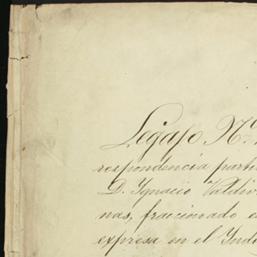 Legajo Nº
respondencia parti
D. Ignacio Valdiv
nas, fraccionado e
expresa en el Indi